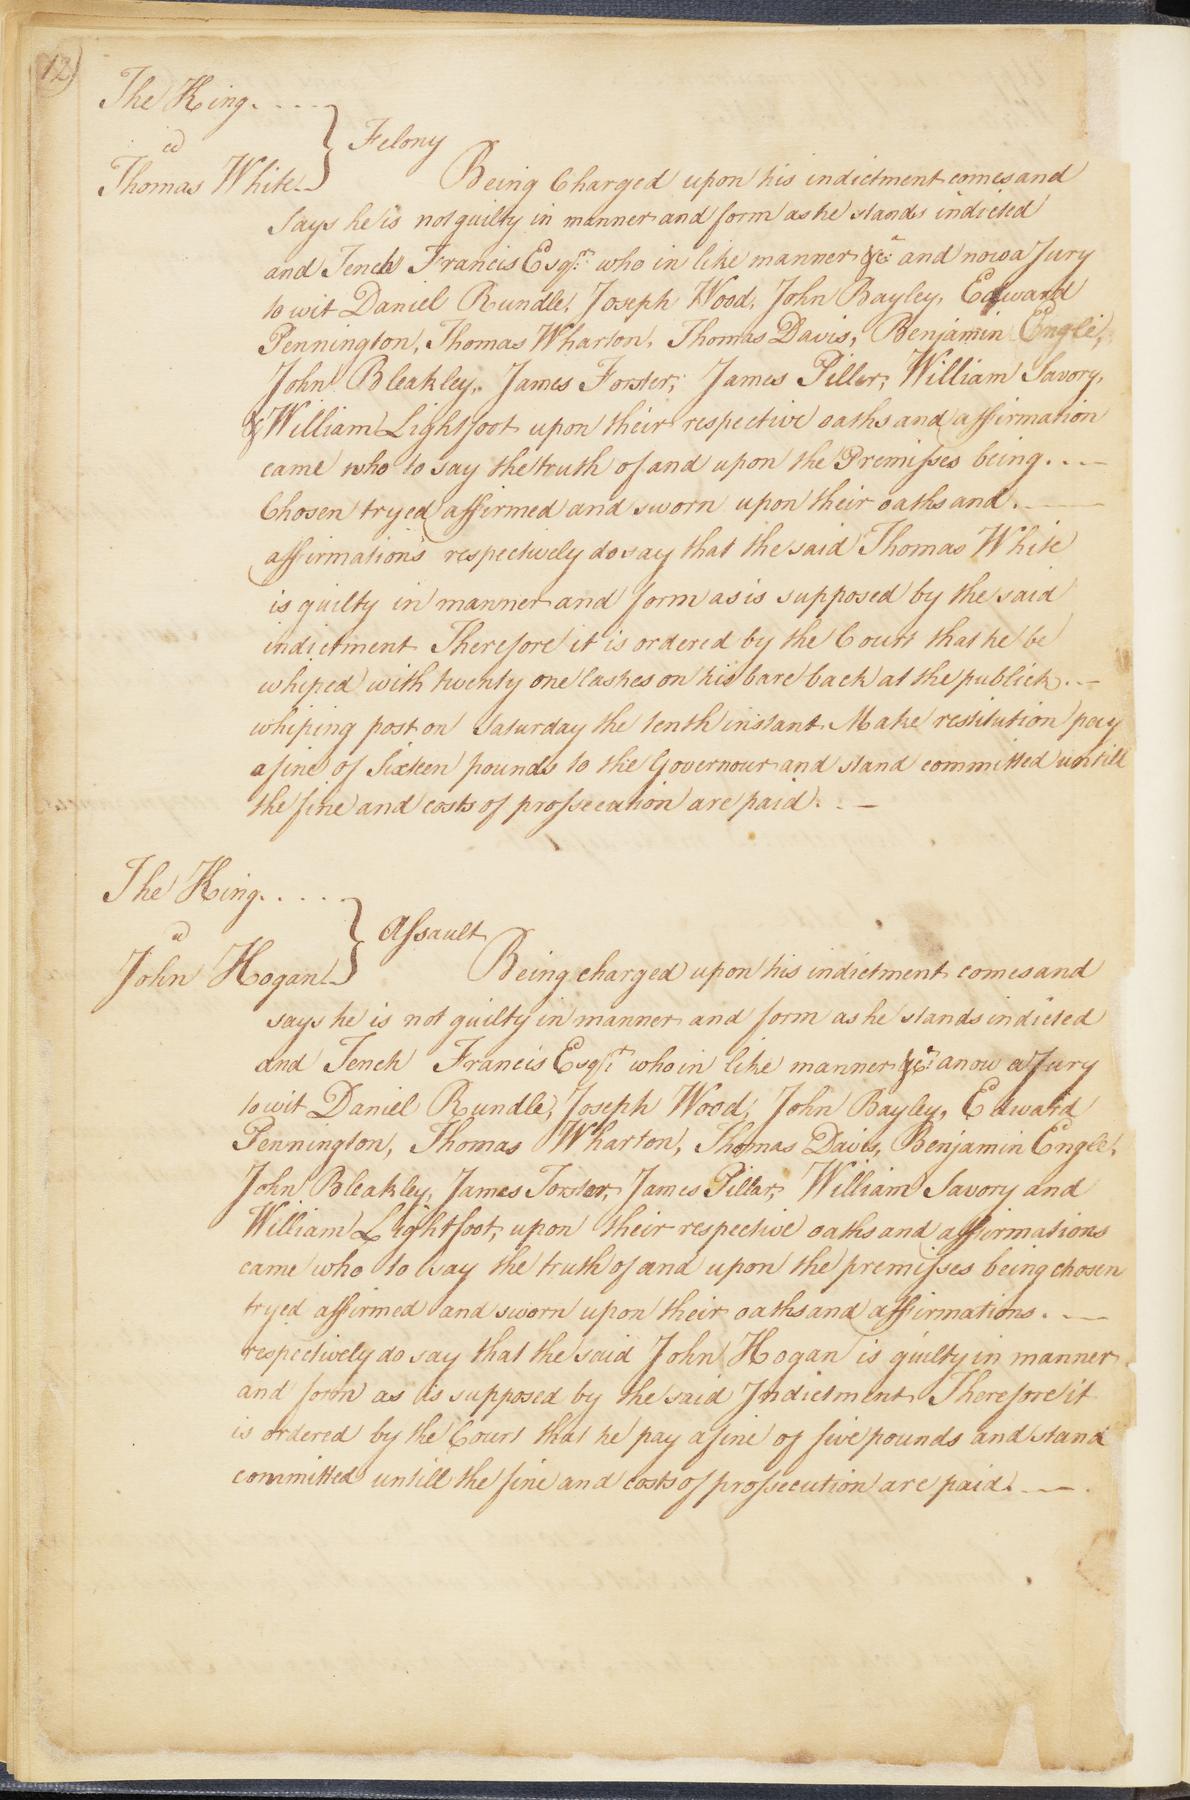 12)
The King. . . . .
ad } Felony
Thomas White Being Charged upon his indictment comes and
Says he is not guilty in manner and form as he stands indicted
and Tench Francis Esqr. who in like manner &c. and now a Jury
to wit Daniel Rundle, Joseph Wood, John Bayley, Edward
Pennington, Thomas Wharton, Thomas Davis, Benjamin Engle,
John Bleakley, James Forster, James Piller, William Savory,
& William Lightfoot upon their respective oaths and affirmation
came who to say the truth of and upon the Premisses being. . . —
Chosen tryed affirmed and sworn upon their oaths and. —
affirmations respectively do say that the said Thomas White
is guilty in manner and form as is supposed by the said
indictment Therefore it is ordered by the Court that he be
whiped with twenty one lashes on his bare back at the publick. . —
whiping post on Saturday the tenth instant Make restitution pay
a fine of Sixteen pounds to the Governour and stand committed untill
the fine and costs of prossecution are paid. . —
The King. . . . .
ad } Assault
John Hogan Being charged upon his indictment comes and
says he is not guilty in manner and form as he stands indicted
and Tench Francis Esqr. who in like manner &c. a now a Jury
to wit Daniel Rundle, Joseph Wood, John Bayley, Edward
Pennington, Thomas Wharton, Thomas Davis, Benjamin Engle,
John Bleakley, James Forster, James Pillar, William Savory and
William Lightfoot, upon their respective oaths and affirmations
came who to say the truth of and upon the premisses being chosen
tryed affirmed and sworn upon their oaths and affirmations. . —
respectively do say that the said John Hogan is guilty in manner
and form as is supposed by the said Indictment Therefore it
is ordered by the Court that he pay a fine of five pounds and stand
committed untill the fine and costs of prossecution are paid. . —